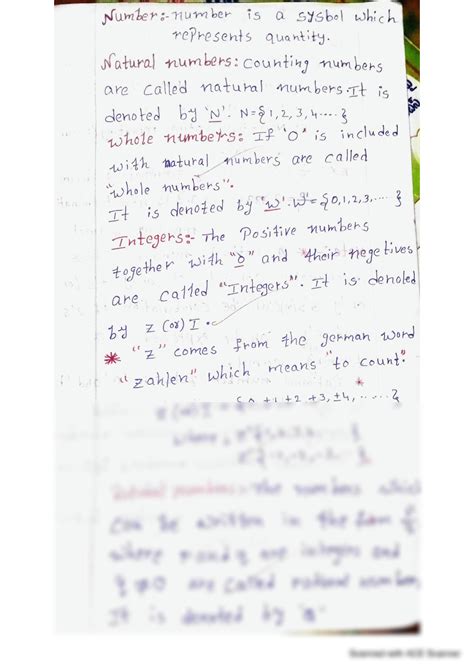 Number:- number is a sysbol which
represents quantity.
Natural numbers: Counting numbers
are called natural numbers. It is
denoted by 'N'. N={1,2,3,4----}
whole numbers: If 'O' is included
with natural numbers are called
"whole numbers".
It is denoted by "w'. W={0,1,2,3,---- }
Integers:- The Positive numbers
together with "0" and their negetives
are called "Integers". It is denoted
by z (or) I.
* "z" comes from the german word
"zahlen" which means "to count".
+1 +2 +3, ±4, ......}
Rational numbers:- The numbers which
can be written in the form
where p and q are integers and
q ≠ 0 are called rational number.
It is denoted by
Scanned with ACE Scanner